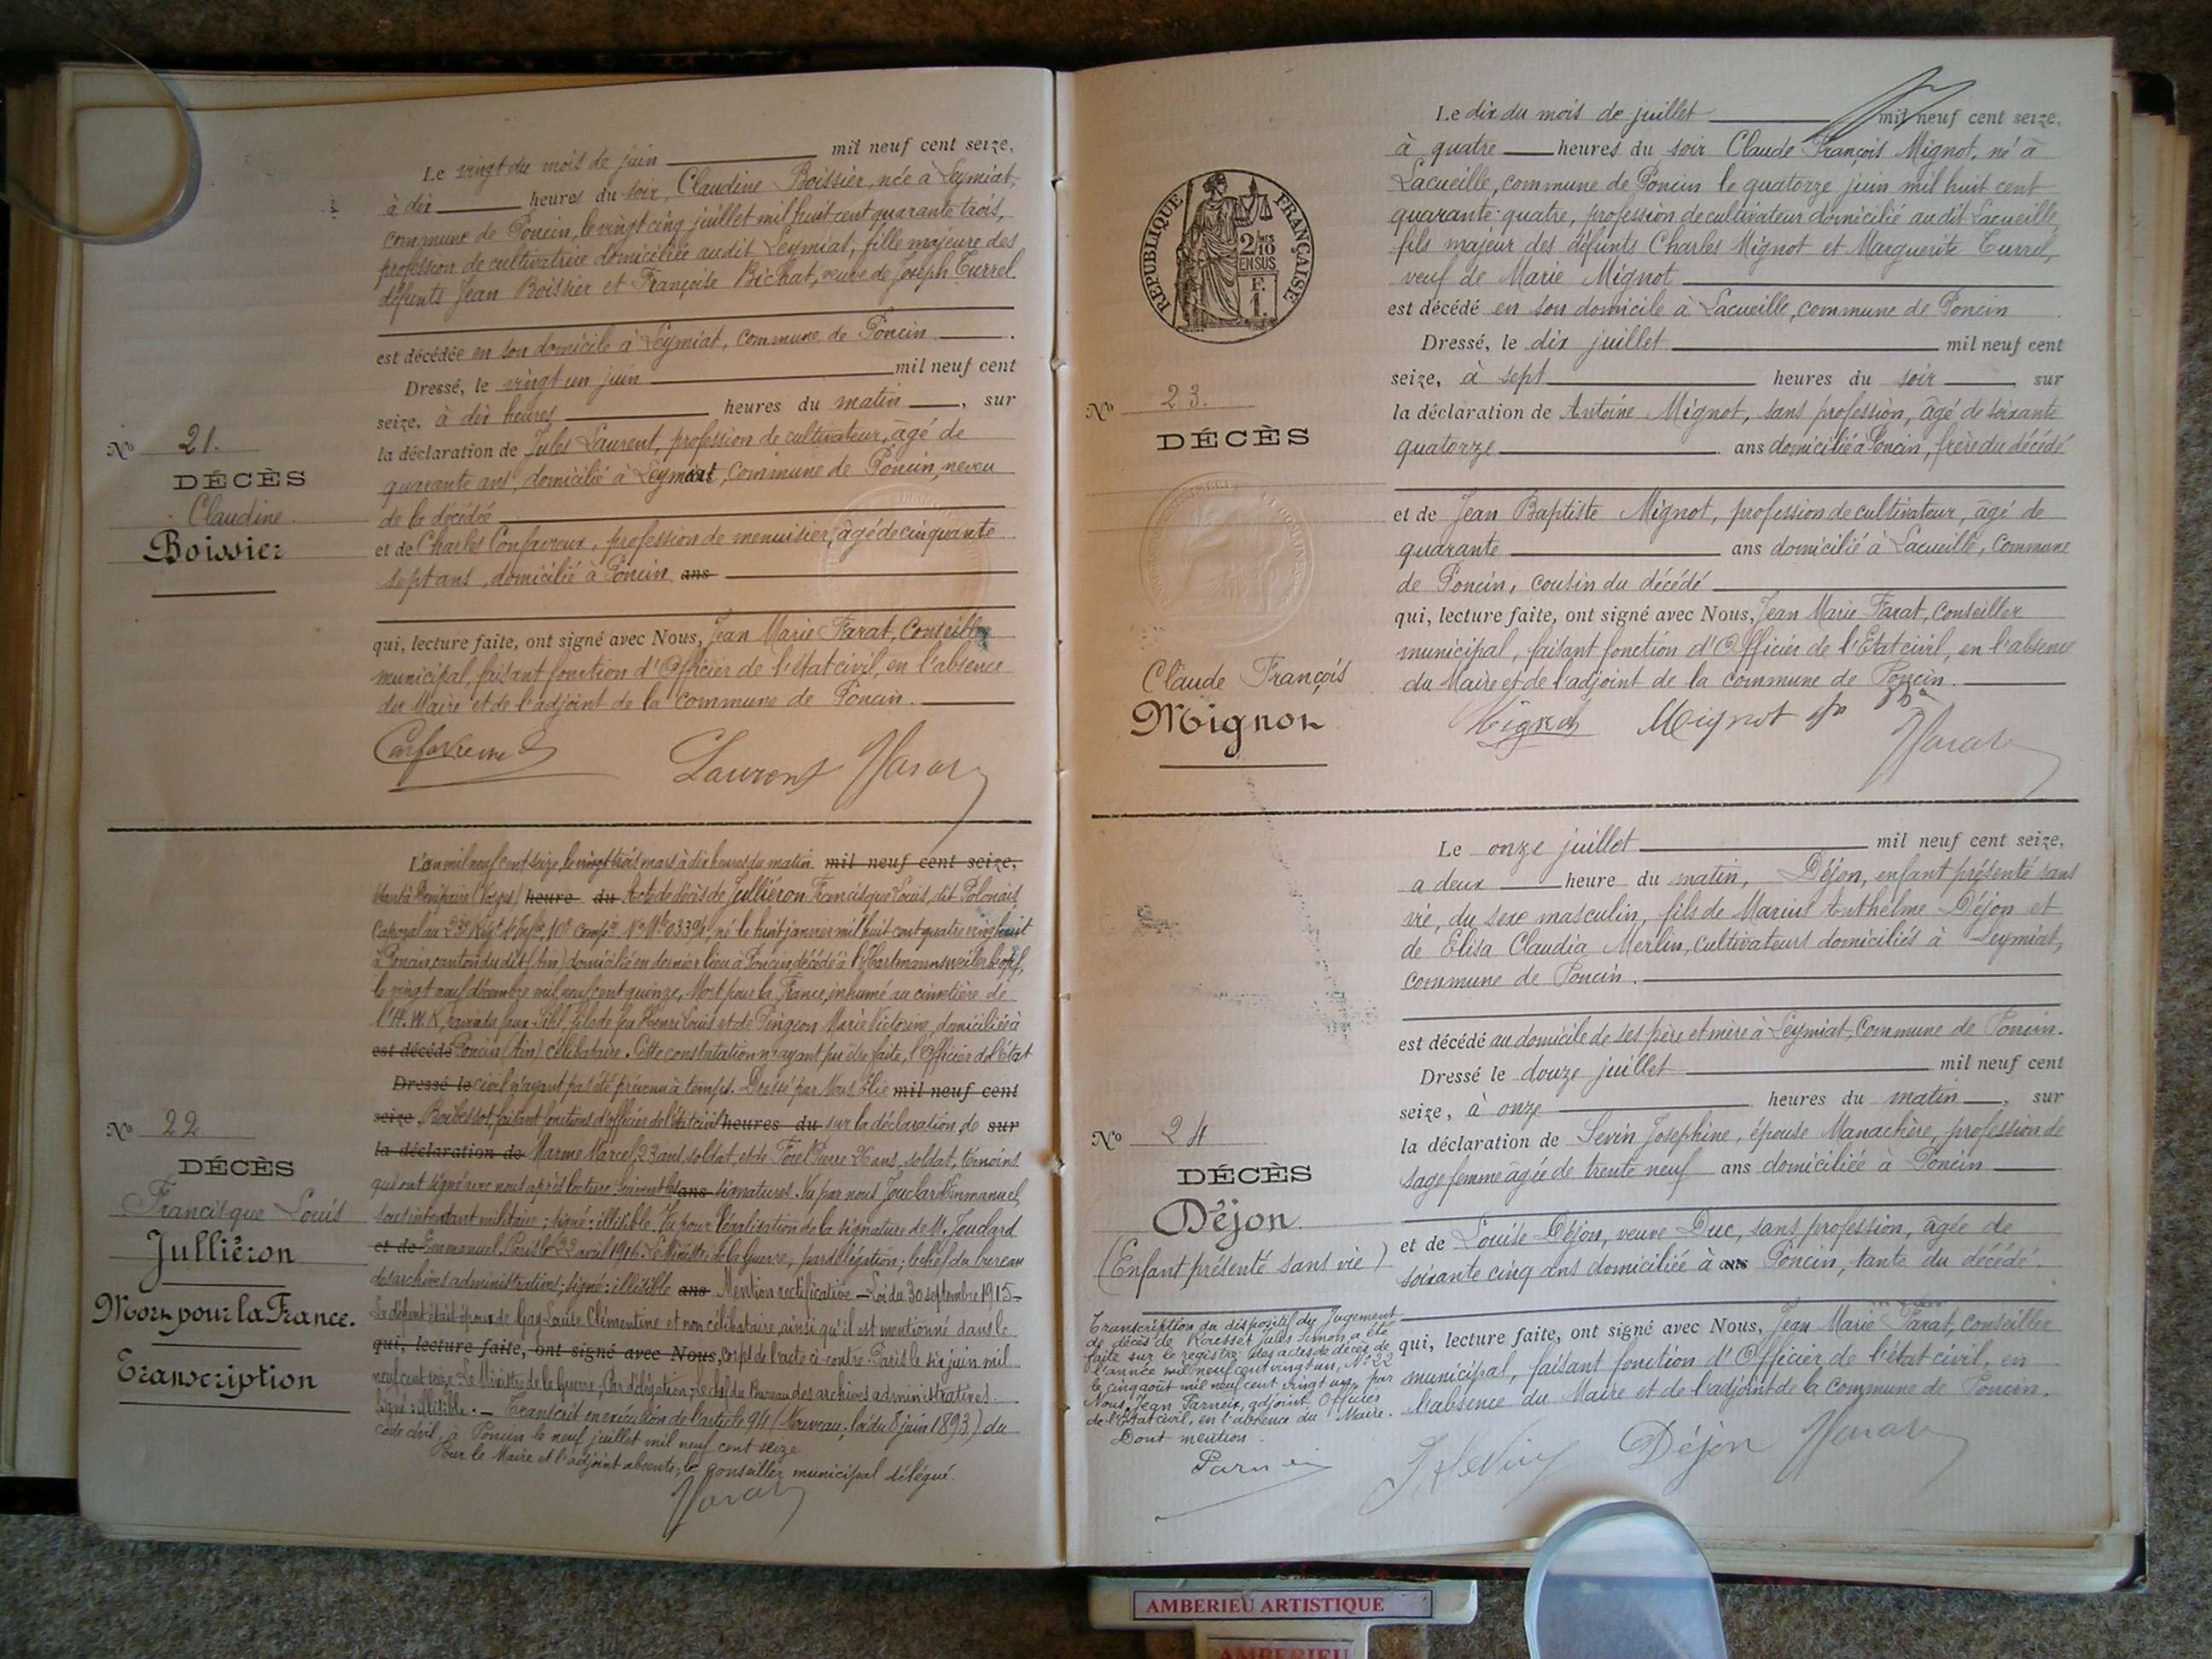 Le vingt du mois de juin mil neuf cent seize,
à dix heures du soir, Claudine Boissier, née à Leymiat,
commune de Poncin, le vingt cinq juillet mil huit cent quarante trois,
profession de cultivatrice domiciliée audit Leymiat, fille majeure des
défunts Jean Boissier et Françoise Bichat, veuve de Joseph Turrel.
est décédée en son domicile à Leymiat, commune de Poncin.
Dressé, le vingt un juin mil neuf cent
seize, à dix heures heures du matin, sur
la déclaration de Jules Laurent, profession de cultivateur, âgé de
quarante ans, domicilié à Leymiat, commune de Poncin, neveu
de la décédée
et de Charles Confavreux, profession de menuisier, âgé de cinquante
sept ans, domicilié à Poncin ans
qui, lecture faite, ont signé avec Nous, Jean Marie Farat, Conseiller
municipal, faisant fonction d'Officier de l'état civil, en l'absence
du Maire et de l'adjoint de la commune de Poncin.
Nº 21.
DÉCÈS
Claudine
Boissier
Laurent Farat
L'an mil neuf cent seize, le vingt trois mars, à dix heures du matin mil neuf cent seize,
heure du Acte de décès de Julliéron Francisque Louis, dit Polonais
Caporal au 23e Régt d'Infie, 10e Compie Nº Mle 03394, né le huit janvier mil huit cent quatre vingt huit
à Poncin, canton du dit (Ain) domicilié en dernier lieu à Poncin, décédé à l'Hartmannsweilerkopf,
le vingt neuf décembre mil neuf cent quinze, Mort pour la France, inhumé au cimetière de
l'H.W.K, fils de feu Henri Louis et de Pingeon Marie Victorine, domiciliée à
est décédé Poncin (Ain) célibataire. Cette constatation n'ayant pu être faite, l'Officier de l'état
Dressé le civil n'ayant pas été prévenu à temps. Dressé par Nous Elie mil neuf cent
seize, faisant fonctions d'officier de l'état civil heures du sur la déclaration de sur
la déclaration de Marme Marcel, 23 ans, soldat, et de Forel Pierre 26 ans, soldat, témoins
qui ont signé avec nous après lecture. Suivent les ans signatures. Vu par nous Jouclard Emmanuel,
sous intendant militaire; signé: illisible. Vu pour légalisation de la signature de M. Jouclard
et de Emmanuel. Paris le 22 avril 1916. Le Ministre de la Guerre; par délégation; le chef du bureau
des archives administratives; signé: illisible ans Mention rectificative — Loi du 30 septembre 1915 —
Le défunt était époux de Gay Louise Clémentine et non célibataire, ainsi qu'il est mentionné dans le
qui, lecture faite, ont signé avec Nous, corps de l'acte ci-contre. Paris le six juin mil
neuf cent seize. Le Ministre de la Guerre; Par délégation; Le chef du Bureau des archives administratives.
Signé: illisible. — Transcrit en exécution de l'article 94 (Nouveau; loi du 8 juin 1893) du
code civil, à Poncin le neuf juillet mil neuf cent seize
Pour le Maire et l'adjoint absents; le Conseiller municipal délégué.
Farat
Nº 22
DÉCÈS
Francisque Louis
Julliéron
Mort pour la France.
Transcription
RÉPUBLIQUE FRANÇAISE
2/10
EN SUS
F.
1.
Le dix du mois de juillet mil neuf cent seize,
à quatre heures du soir Claude François Mignot, né à
Lacueille, commune de Poncin le quatorze juin mil huit cent
quarante-quatre, profession de cultivateur domicilié audit Lacueille,
fils majeur des défunts Charles Mignot et Marguerite Turrel,
veuf de Marie Mignot
est décédé en son domicile à Lacueille, commune de Poncin
Dressé, le dix juillet mil neuf cent
seize, à sept heures du soir, sur
la déclaration de Antoine Mignot, sans profession, âgé de soixante
quatorze ans domicilié à Poncin, frère du décédé
et de Jean Baptiste Mignot, profession de cultivateur, âgé de
quarante ans domicilié à Lacueille, Commune
de Poncin, cousin du décédé
qui, lecture faite, ont signé avec Nous, Jean Marie Farat, Conseiller
municipal, faisant fonction d'Officier de l'Etat civil, en l'absence
du Maire et de l'adjoint de la commune de Poncin.
Nº 23.
DÉCÈS
Claude François
Mignot
Mignot Mignot Farat
Le onze juillet mil neuf cent seize,
à deux heure du matin, Déjon, enfant présenté sans
vie, du sexe masculin, fils de Marius Anthelme Déjon et
de Elisa Claudia Merlin, cultivateurs domiciliés à Leymiat,
commune de Poncin.
est décédé au domicile de ses père et mère à Leymiat, Commune de Poncin.
Dressé le douze juillet mil neuf cent
seize, à onze heures du matin, sur
la déclaration de Sevin Josephine, épouse Manachère, profession de
sage femme âgée de trente neuf ans domiciliée à Poncin
et de Louise Déjon, veuve Duc, sans profession, âgée de
soixante cinq ans domiciliée à ans Poncin, tante du décédé.
qui, lecture faite, ont signé avec Nous, Jean Marie Farat, conseiller
municipal, faisant fonction d'Officier de l'état civil, en
l'absence du Maire et de l'adjoint de la commune de Poncin.
Nº 24
DÉCÈS
Déjon
(Enfant présenté sans vie)
Transcription du dispositif du Jugement
de décès de Rousset Jules Simon a été
faite sur le registre des actes de décès de
l'année mil neuf cent vingt un, Nº 22
le cinq août mil neuf cent vingt un, par
Nous, Jean Parneix, adjoint, Officier
de l'Etat civil, en l'absence du Maire.
Dont mention
Déjon Farat
AMBERIEU ARTISTIQUE
AMBERIEU